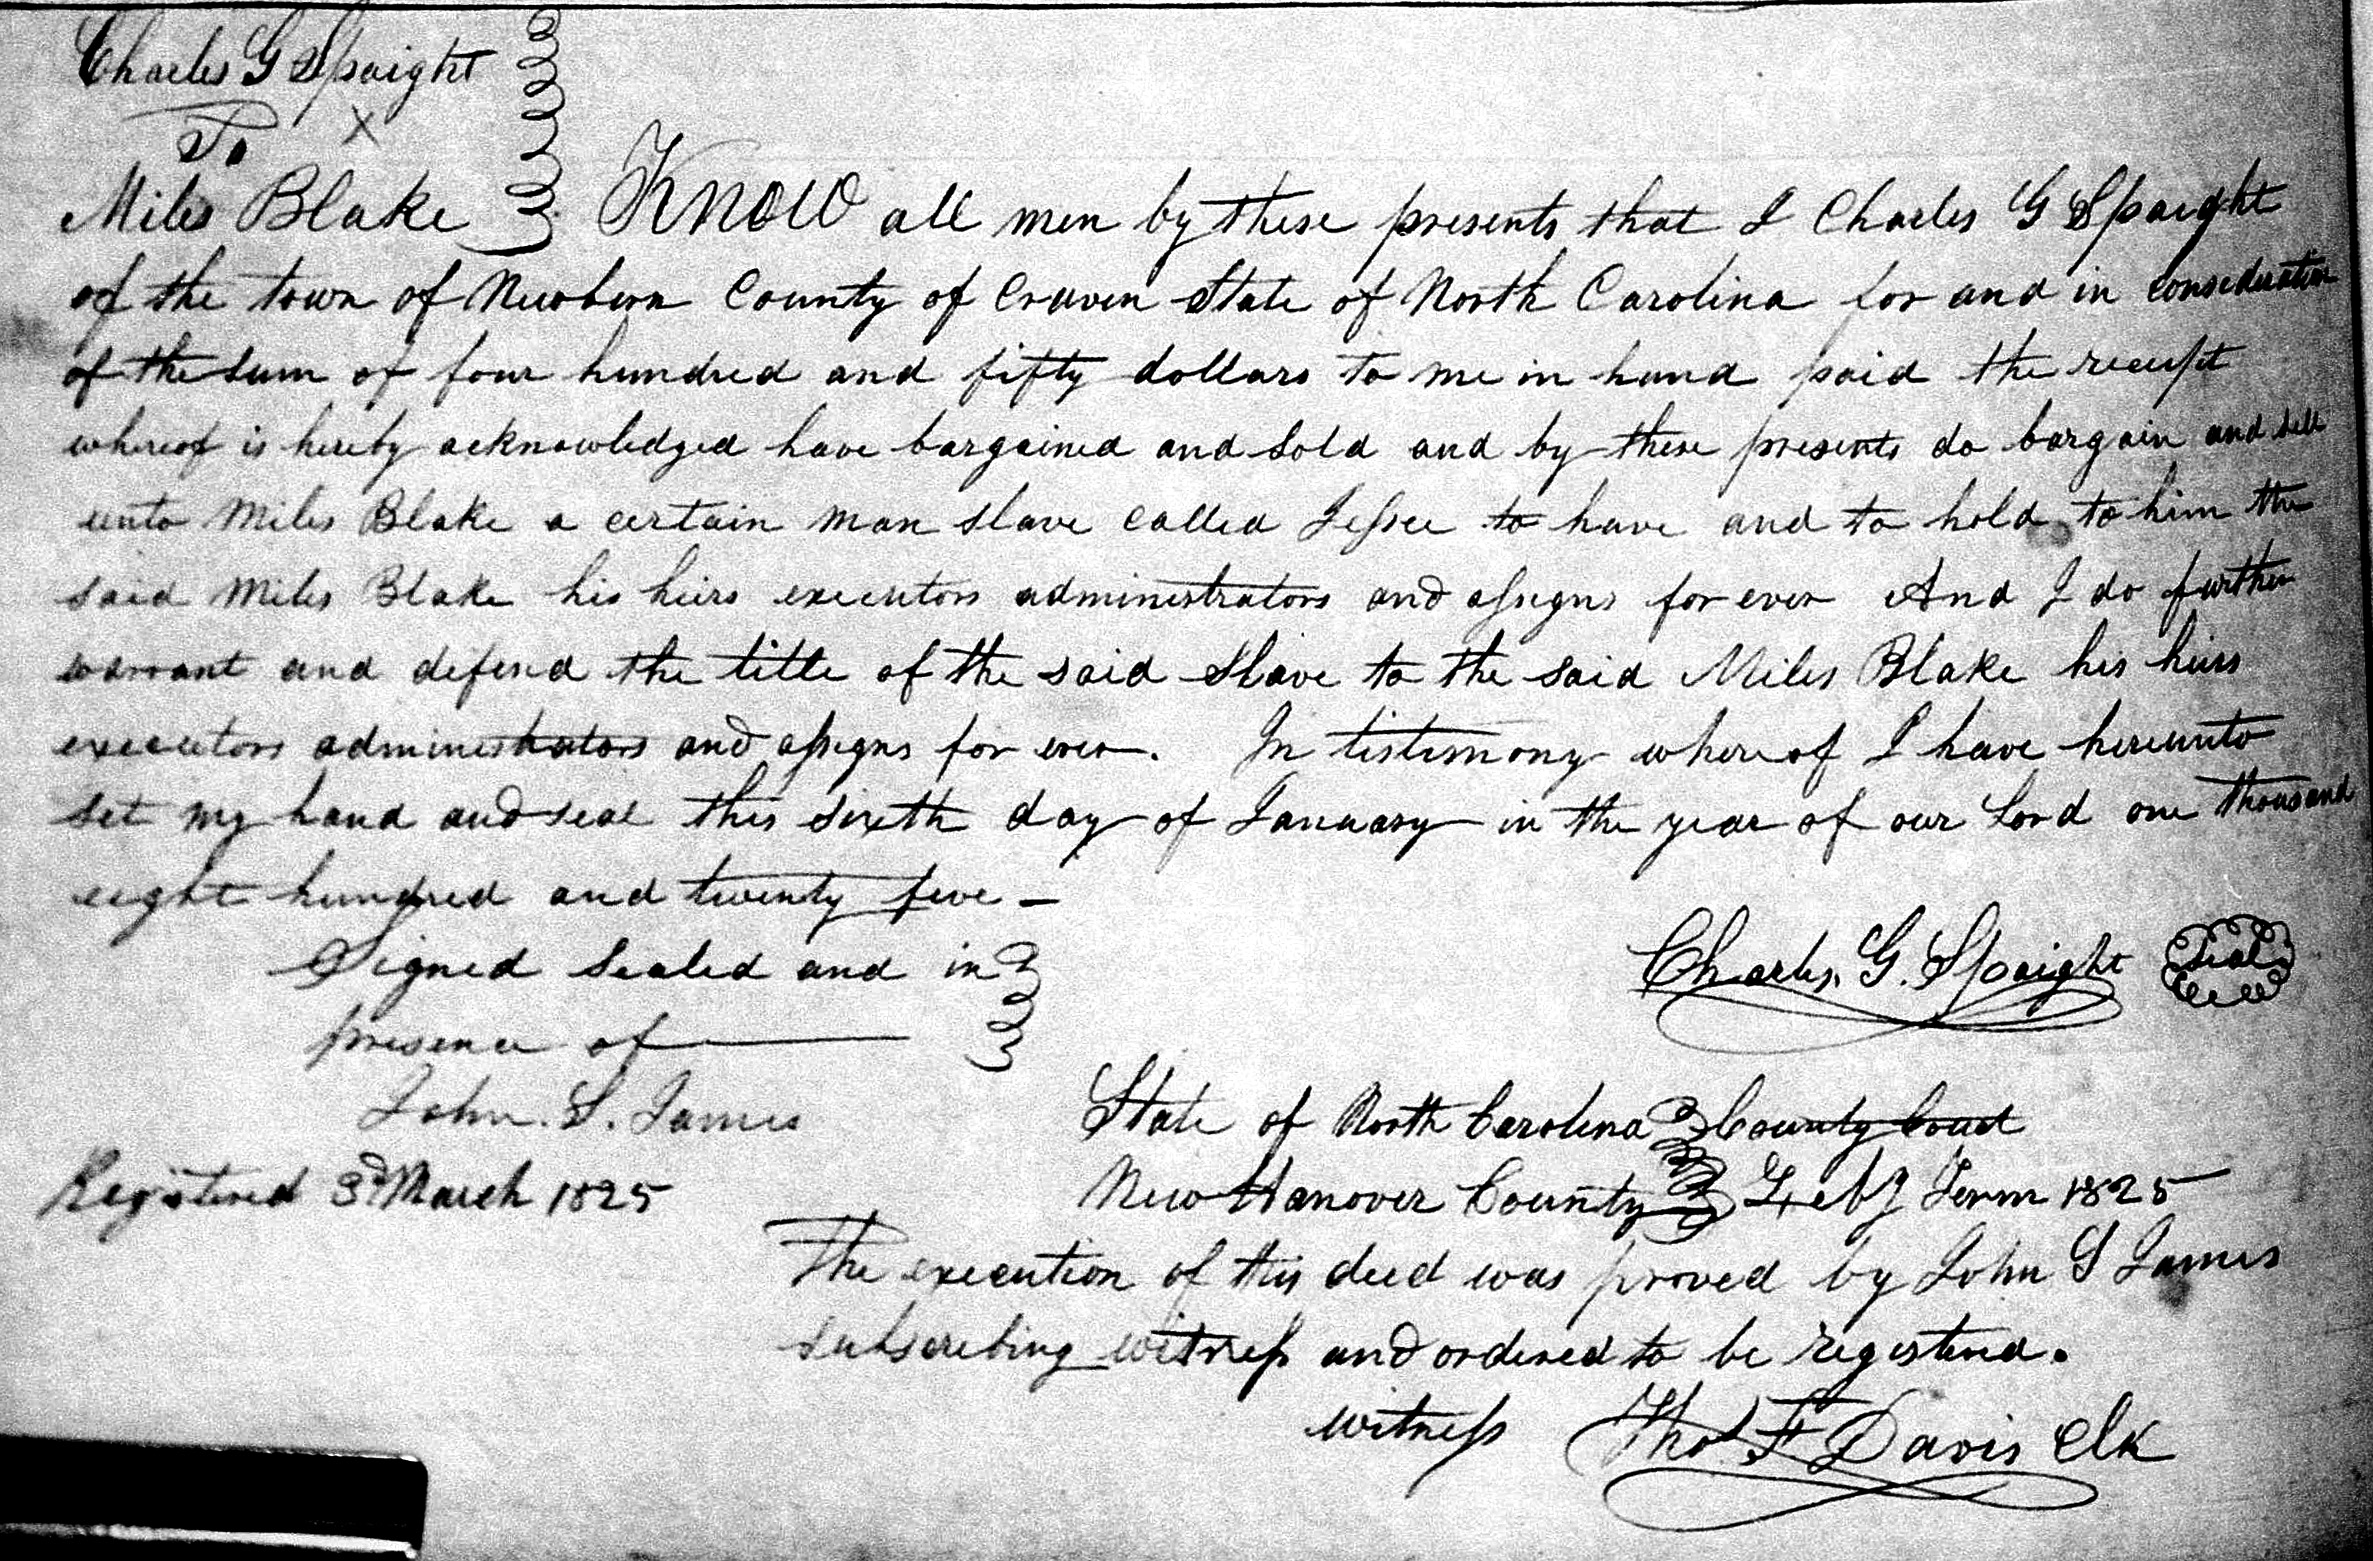 Charles G Spaight
To x
Miles Blake Know all men by these presents that I Charles G Spaight
of the town of Newbern County of Craven State of North Carolina for and in consideration
of the sum of four hundred and fifty dollars to me in hand paid the receipt
whereof is hereby acknowledged have bargained and sold and by these presents do bargain and sell
unto Miles Blake a certain man slave called Jessee to have and to hold to him the
said Miles Blake his heirs executors administrators and assigns for ever And I do further
warrant and defend the title of the said slave to the said Miles Blake his heirs
executors administrators and assigns for ever. In testimony whereof I have hereunto
set my hand and seal this sixth day of January in the year of our Lord one thousand
eight hundred and twenty five —
Signed sealed and in
Charles. G. Spaight Seal
presence of
John. S. James
State of North Carolina County Court
Registered 3d March 1825
New Hanover County Feby Term 1825
The execution of this deed was proved by John S James
subscribing witness and ordered to be registered.
witness Thos F Davis Clk